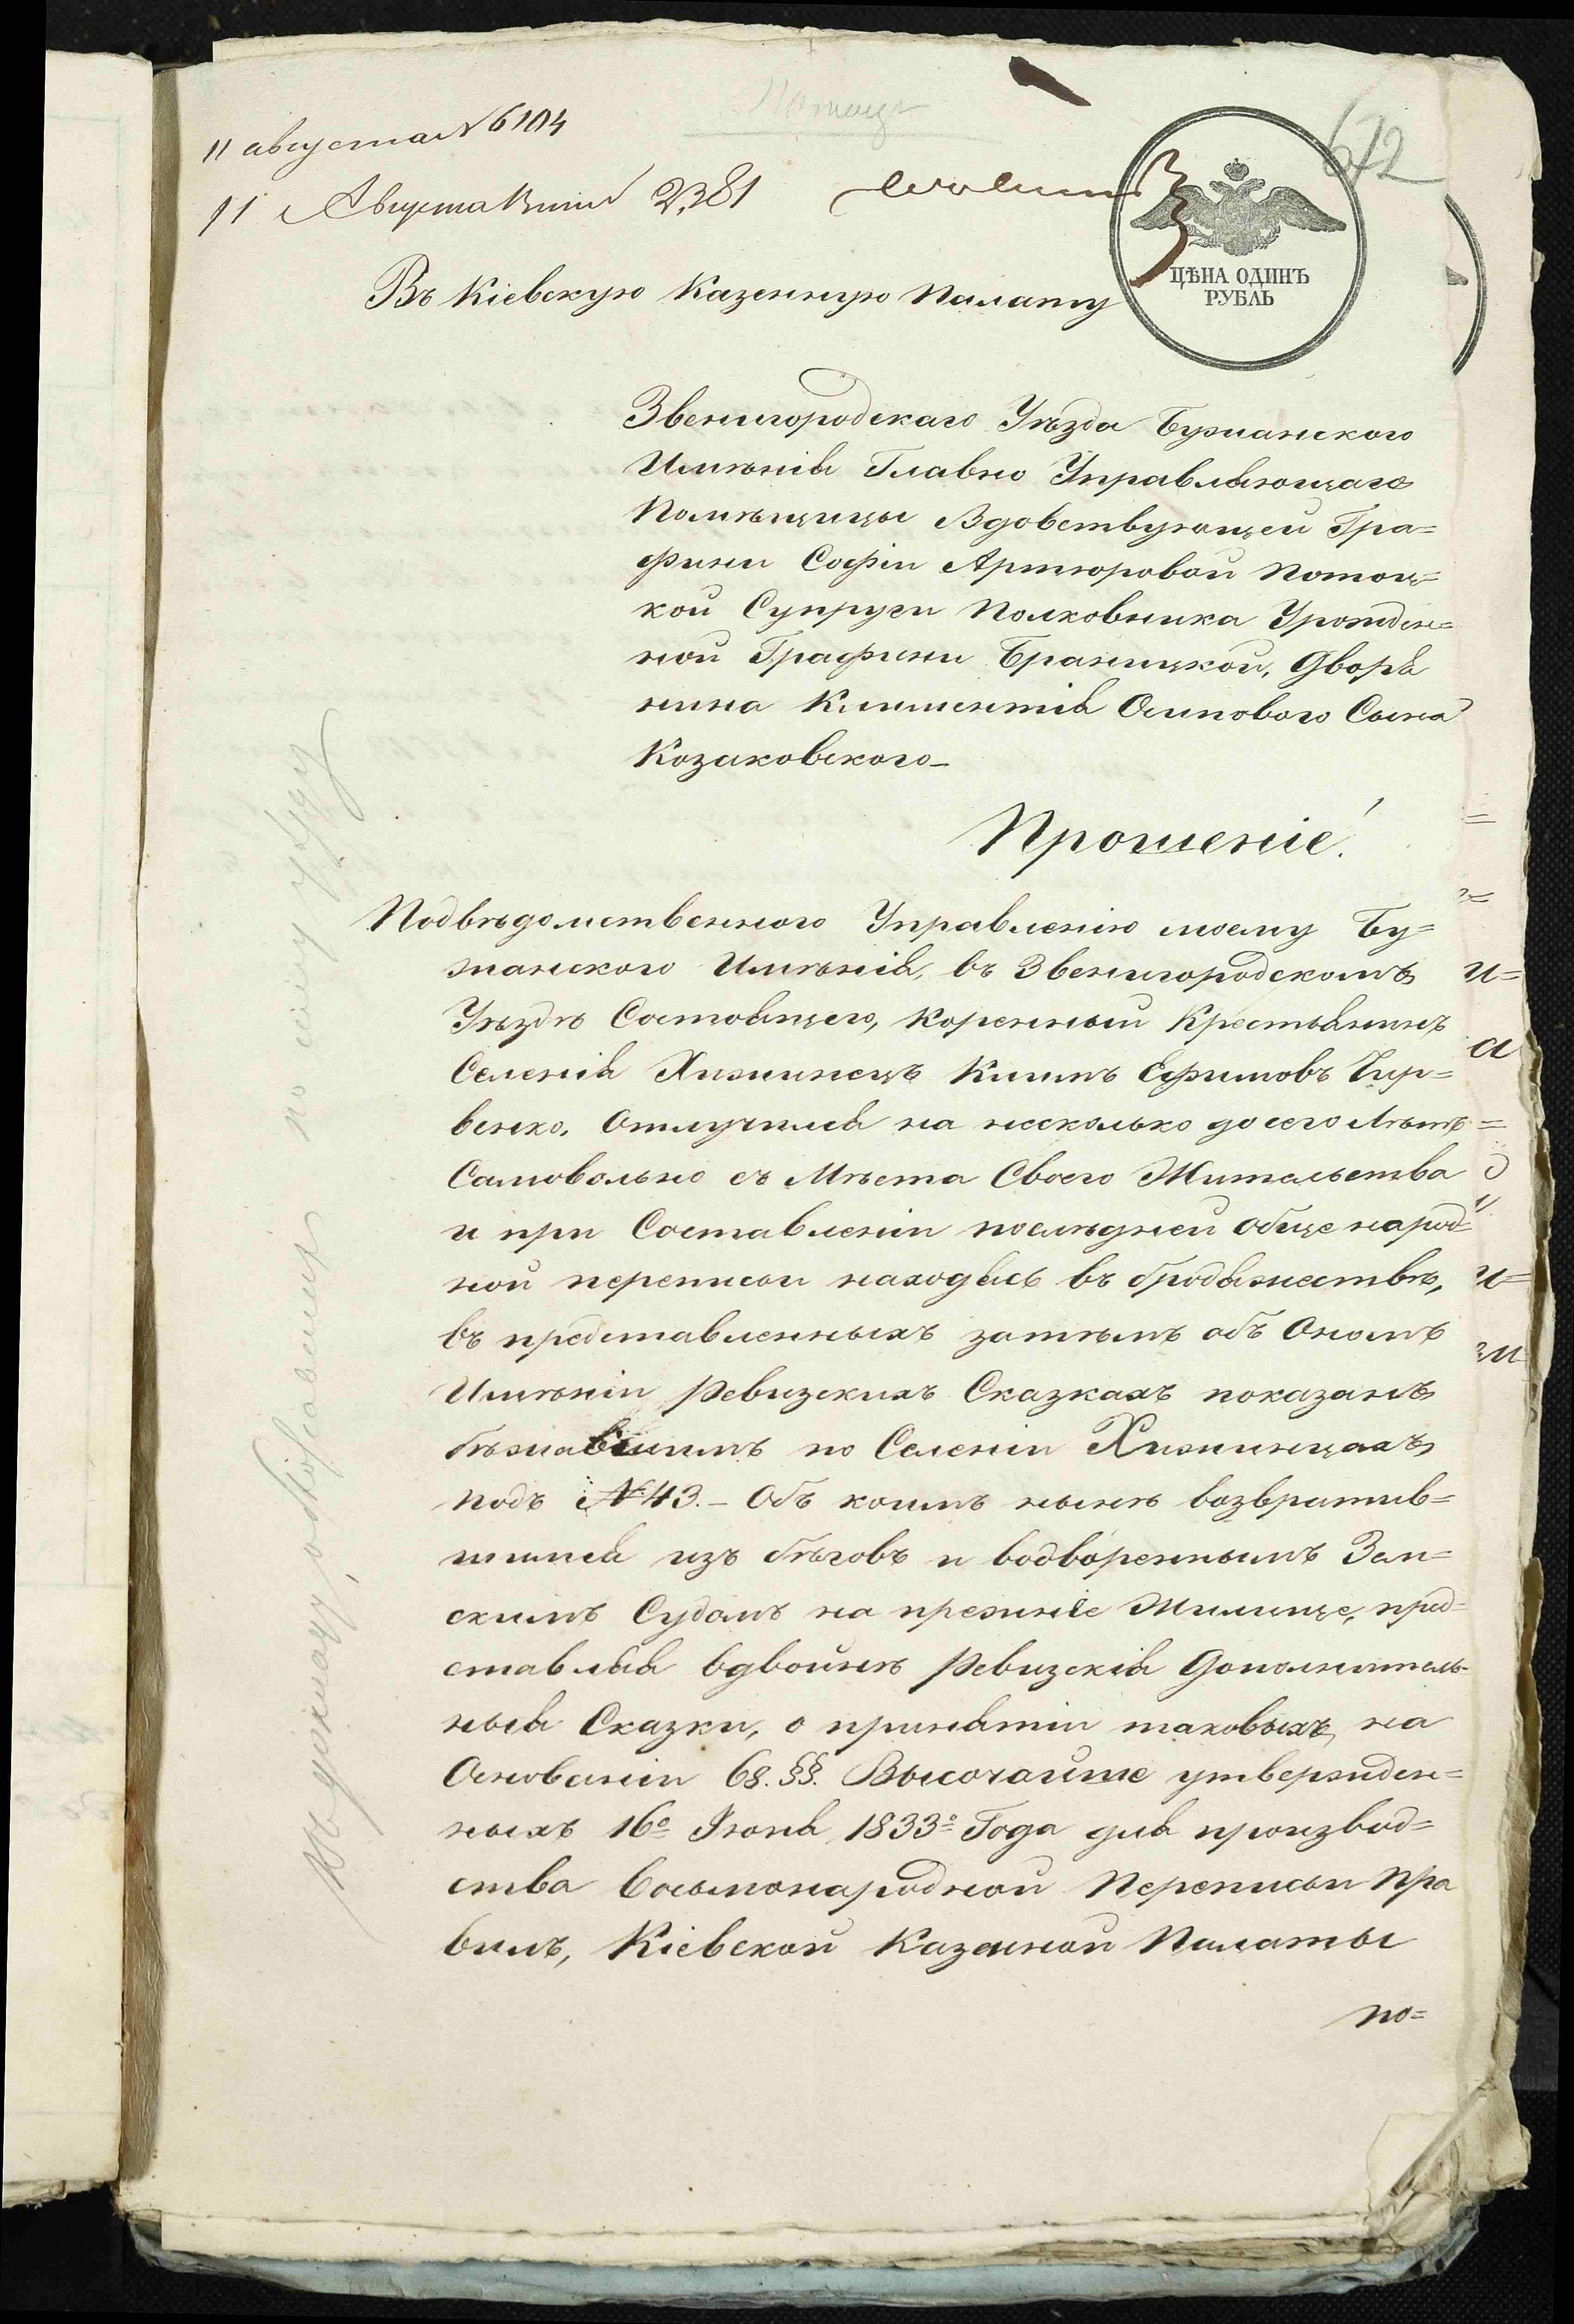 11 августа № 6104
11 Августа 2381
672
ЦѢНА ОДИНЪ
РУБЛЬ
Въ Кіевскую Казенную Палату
Звенигородскаго Уѣзда Бужанского
Имѣнія Главно Управляющаго
Помѣщицы Вдовствующей Гра=
фини Софіи Артюровой Потоц=
кой Супруги Полковника Урожден=
ной Графини Браницкой, Дворя
нина Климентія Осипового Сына
Козаковского
Прошеніе!
Подвѣдомственного Управленію моему Бу=
жанского Имѣнія, въ Звенигородскомъ
Уѣздѣ Состоящего, коренный Крестьянинъ
Селенія Хижинецъ Климъ Ефимовъ Чир=
венко, Отлучился на несколько до сего Лѣтъ
Самовольно съ Мѣста Своего Жительства
и при Составленіи послѣдней обще народ=
ной переписи находясь въ бродяжествѣ,
въ представленныхъ затѣмъ объ Ономъ
Имѣніи Ревизскихъ Сказкахъ показанъ
бѣжавшимъ по Селеніи Хижинцахъ
подъ № 43. – Объ коимъ нынѣ возвратив=
шимся изъ бѣговъ и водвореннымъ Зем=
скимъ Судомъ на прежнѣе Жилище, пред=
ставляя вдвойнѣ Ревизскія Дополнитель-
ныя Сказки, о принятіи таковыхъ, на
Основаніи 68. §§. Высочайше утвержден=
ныхъ 16º Іюня 1833º Года для производ=
ства восьмонародной Переписи Пра
вилъ, Кіевской Казенной Палаты
по=